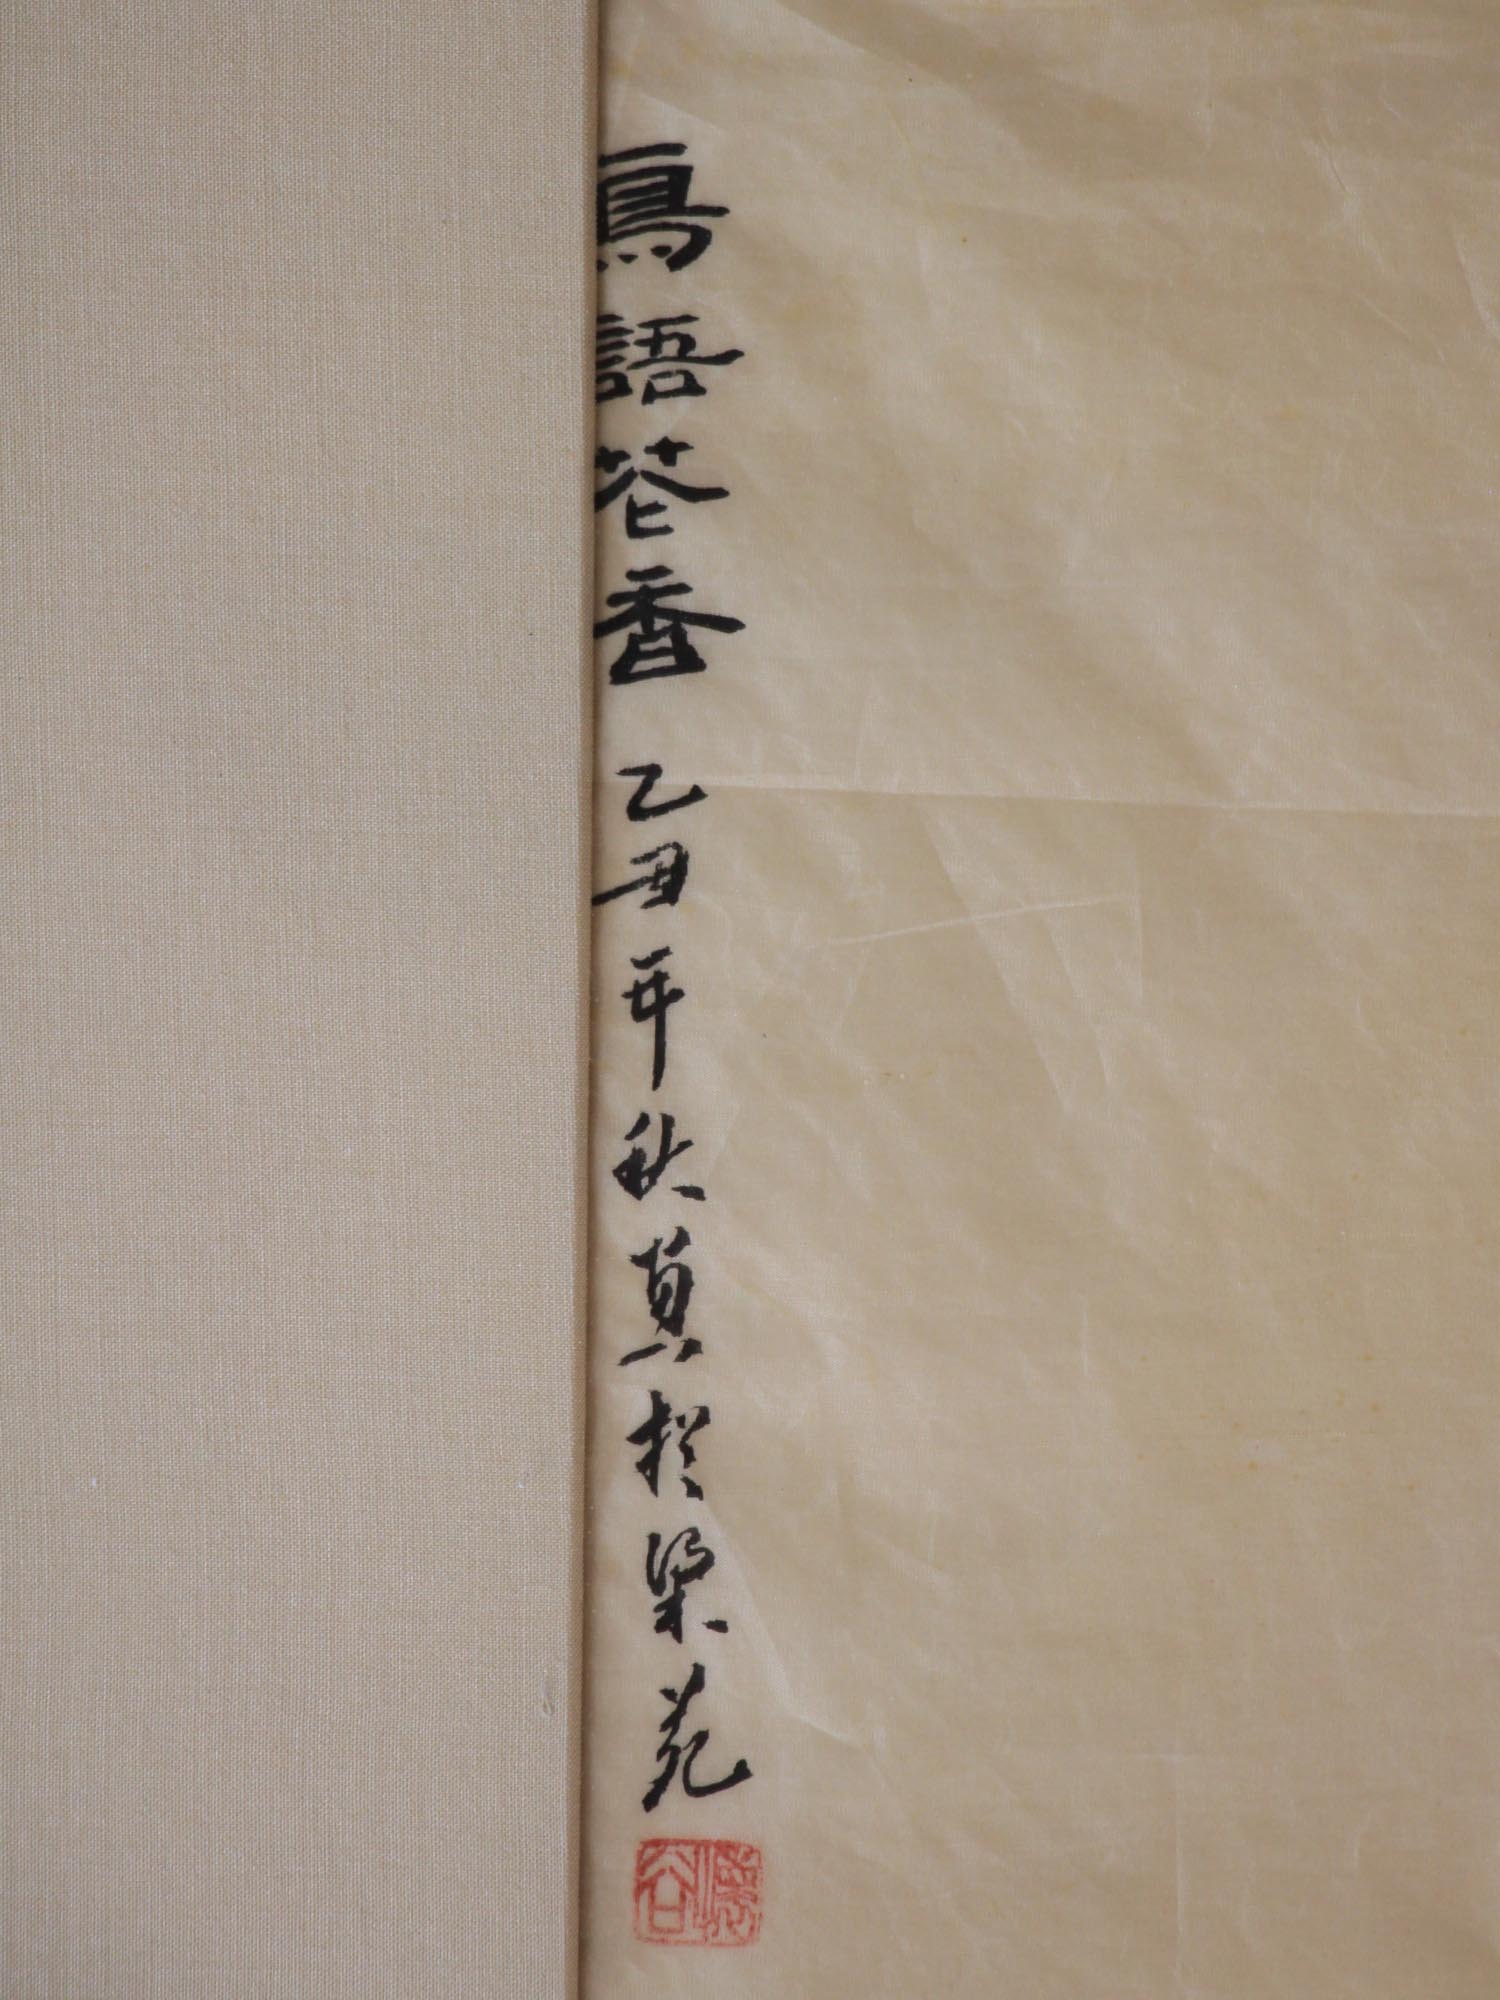 鳥語花香 乙丑年秋真於梁苑